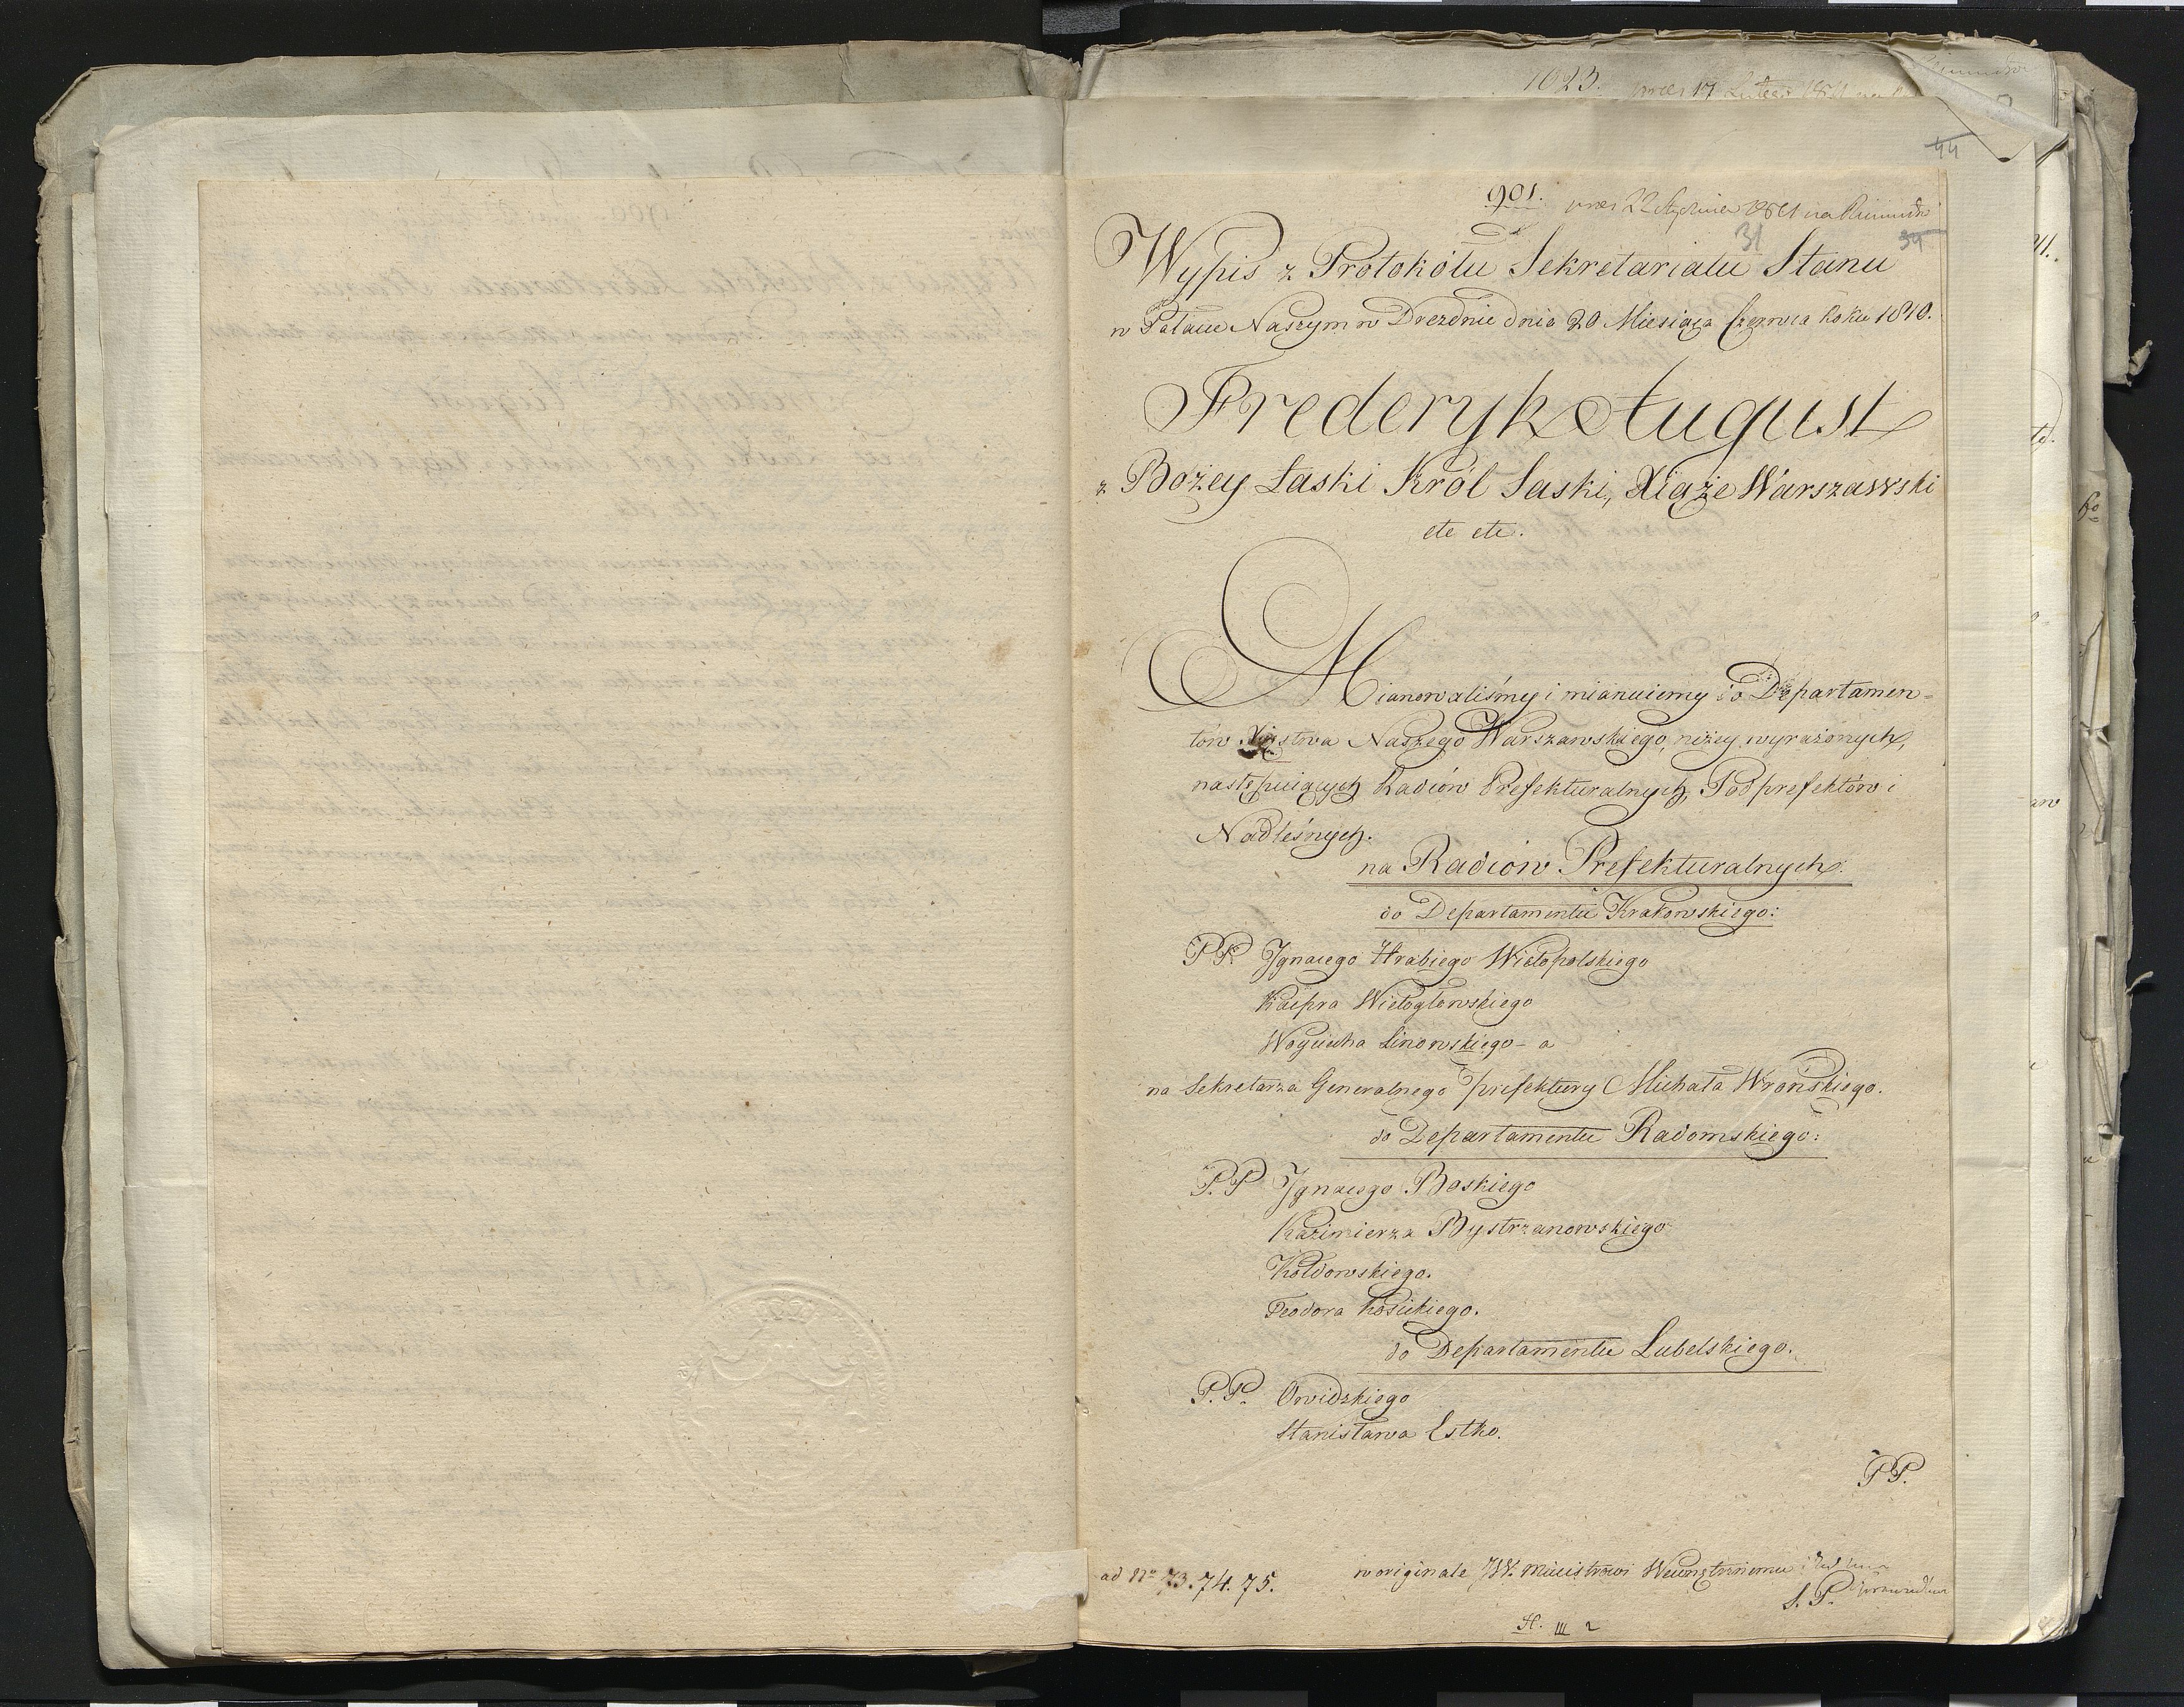 1023.
44
901.
31
34
Wypis z Protokółu Sekretariatu Stanu
w Pałacu Naszym w Dreznie dnia 20 Miesiąca Czerwca Roku 1810.
Frederyk August
z Bożey Łaski Król Saski, Xiąże Warszawski
etc etc.
Mianowaliśmy i mianuiemy do Departamen-
tów Xięstwa Naszego Warszawskiego, niżey wyrażonych,
następuiących Radców Prefekturalnych, Podprefektów i
Nadleśnych.
na Radców Prefekturalnych.
do Departamentu Krakowskiego:
PP. Ignacego Hrabiego Wielopolskiego
Kacpra Wielogłowskiego
Woyciecha Linowskiego - a
na Sekretarza Generalnego prefektury Michała Wrońskiego.
do Departamentu Radomskiego:
P.P Ignacego Boskiego
Kazimierza Bystrzanowskiego
Kołdowskiego.
Teodora Łosickiego.
do Departamentu Lubelskiego.
P.P. Owidzkiego
Stanisława Estko.
PP.
ad No 73. 74. 75. w originale JW. Ministrowi Wewnętrznemu
S. P.
H. III 2